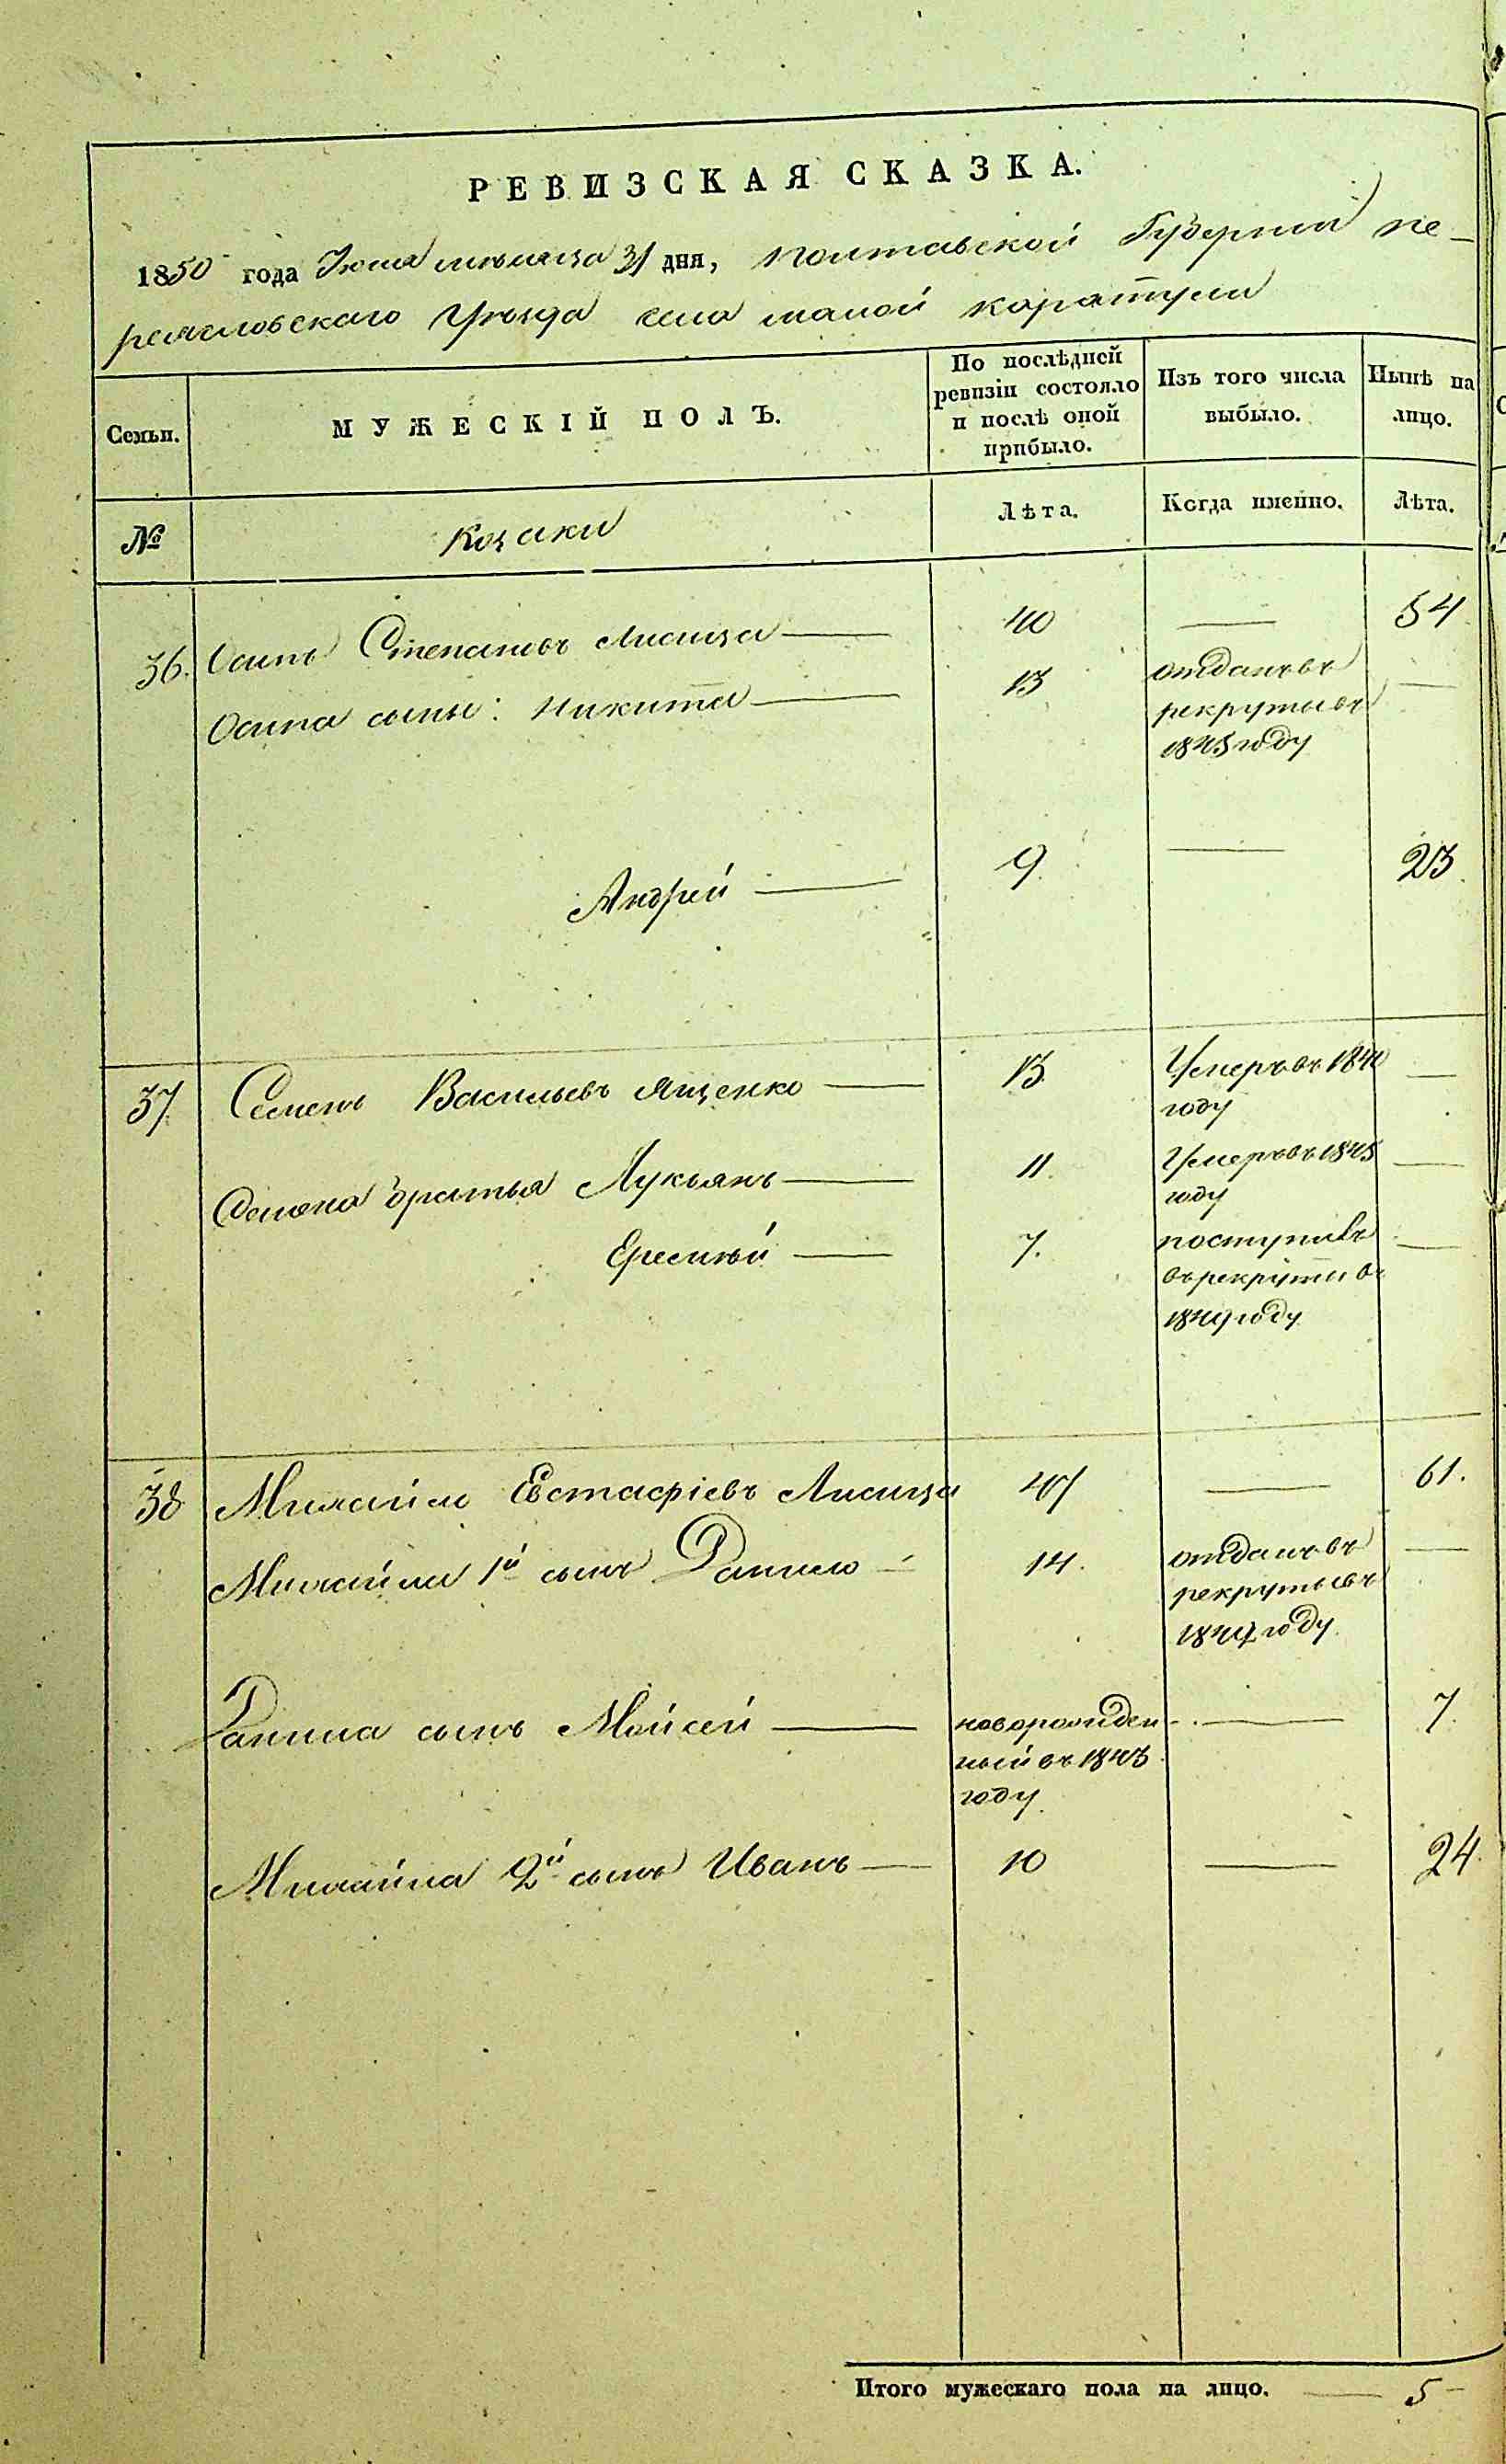 РЕВИЗСКАЯ СКАЗКА.
1850 года Июля мѣсяца 31 дня, Полтавской Губерніи Пе-
реясловскаго Уѣзда села малой каратули
Семьи. МУЖЕСКІЙ ПОЛЪ. По послѣдней ревизіи состояло и послѣ оной прибыло. Изъ того числа выбыло. Нынѣ на лицо.
№ Козаки Лѣта. Когда именно. Лѣта.
36. Осипъ Степановъ Лисица — 40 — 54
Осипа сыны: Никита — 13 отданъ въ —
рекруты въ
1845 году
Андрей — 9. — 23.
37. Семенъ Васильевъ Ященко — 13. Умеръ въ 1840 —
году
Семена братья Лукьянъ — 11. Умеръ въ 1845 —
году
Еремѣй — 7. поступилъ —
въ рекруты въ
1849 году
38 Михайло Евстафіевъ Лисица 47 — 61.
Михайла 1й сынъ Данило — 14. отданъ въ —
рекруты въ
году
Данила сынъ Мойсей — новорожден- — 7.
ный въ 1843
году
Михайла 2й сынъ Иванъ — 10 — 24.
Итого мужескаго пола на лицо. — 5 —